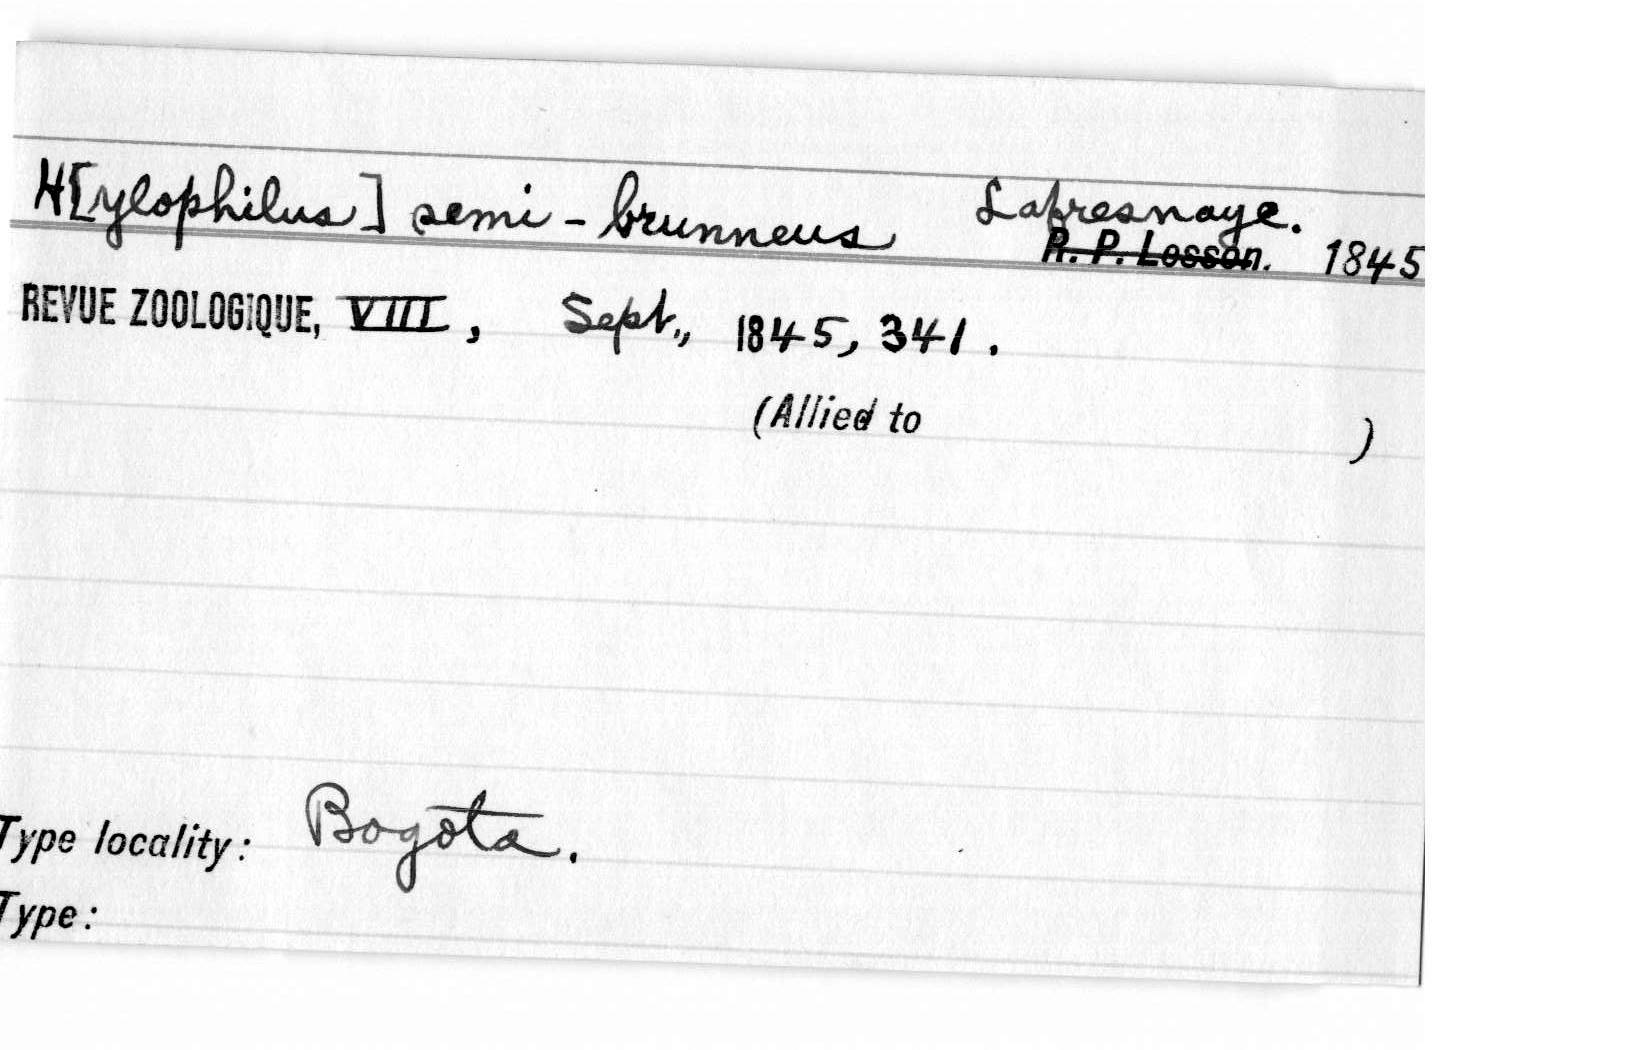 H[ylophilus] semi-brunneus Lafresnaye.
R. P. Lesson. 1845
REVUE ZOOLOGIQUE, VIII, Sept., 1845, 341.
(Allied to )
Type locality: Bogota.
Type: